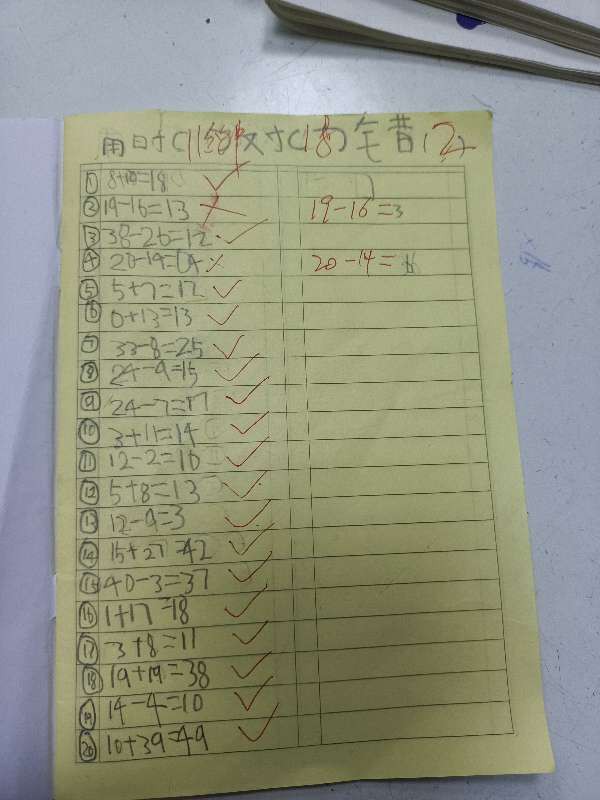 用时(11分钟)对(18)午昔(2)
① 8+10=18
② 19-16=13 19-16=3
③ 38-26=12
④ 20-14=14 20-14=6
⑤ 5+7=12
⑥ 0+13=13
⑦ 33-8=25
⑧ 24-9=15
⑨ 24-7=17
⑩ 3+11=14
⑪ 12-2=10
⑫ 5+8=13
⑬ 12-9=3
⑭ 15+27=42
⑮ 40-3=37
⑯ 1+17=18
⑰ 3+8=11
⑱ 19+19=38
⑲ 14-4=10
⑳ 10+39=49